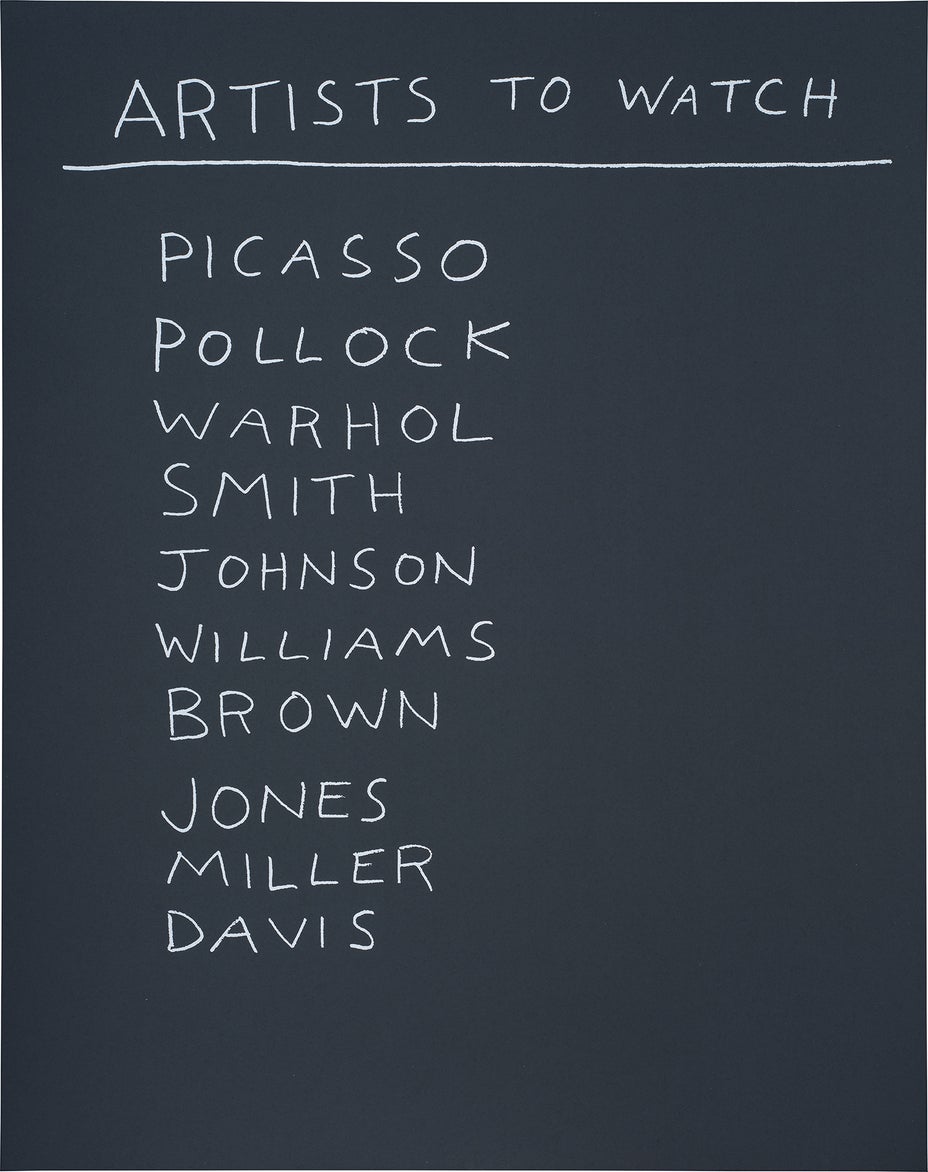 ARTISTS TO WATCH
PICASSO
POLLOCK
WARHOL
SMITH
JOHNSON
WILLIAMS
BROWN
JONES
MILLER
DAVIS